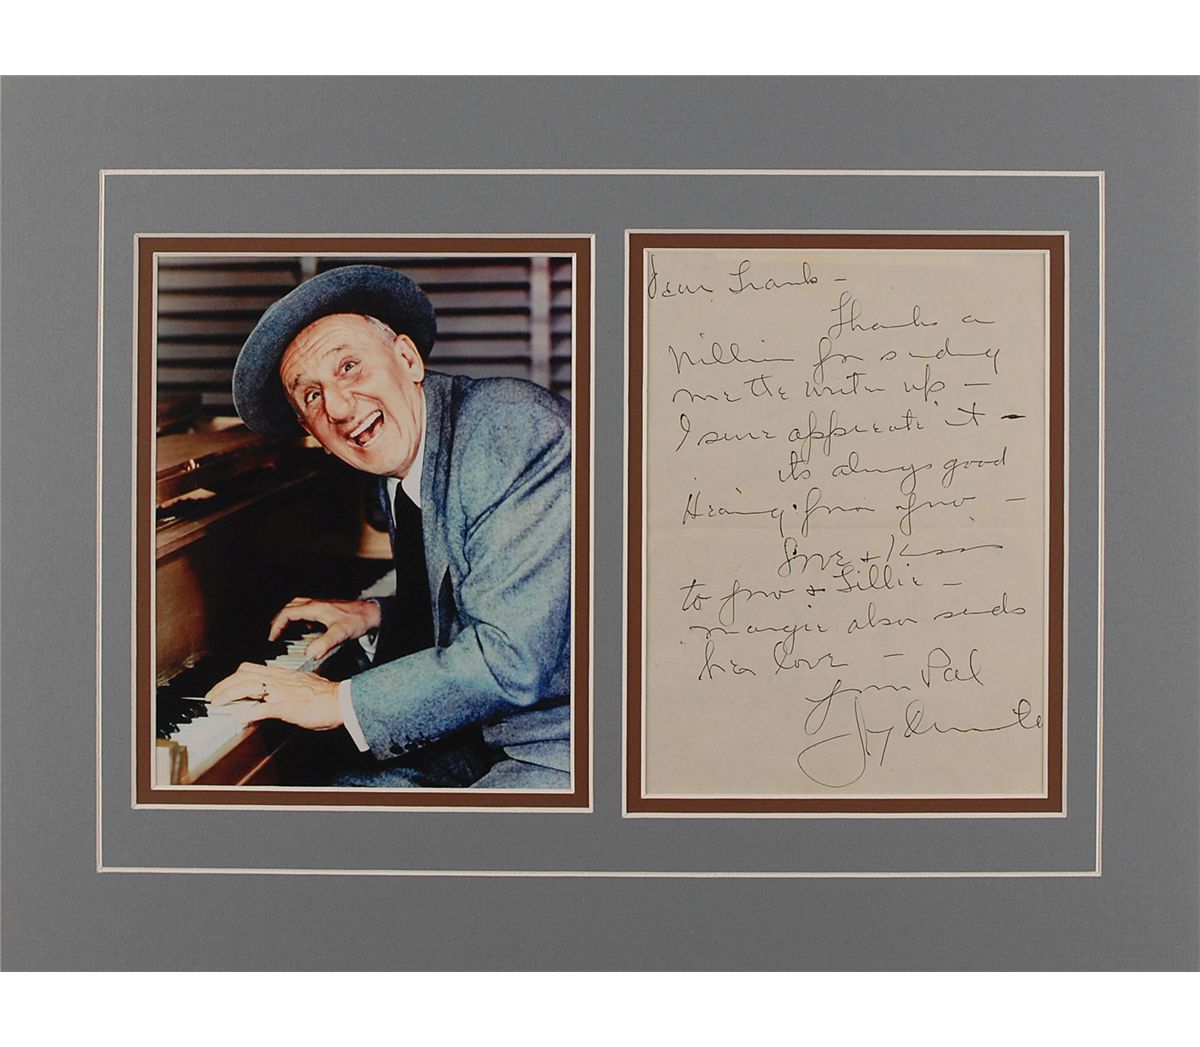 Dear Frank –
Thanks a
Million for sending
me the write up –
I sure appreate it –
its always good
Hearing from you –
Love + Kisses
to you + Lillie –
margie also sends
her love – Your Pal
Jimmy Durante